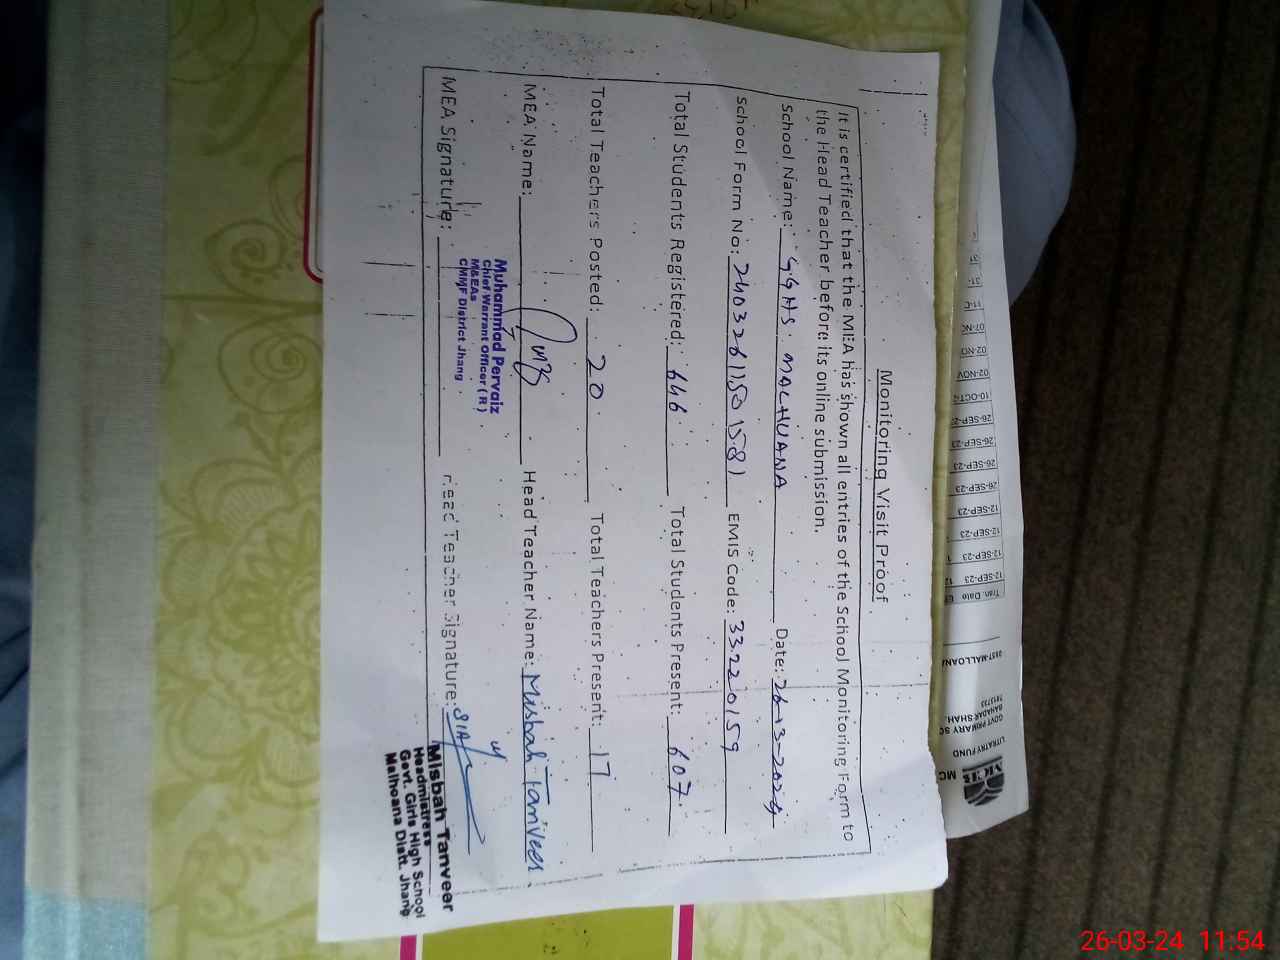 Monitoring Visit Proof
It is certified that the MEA has shown all entries of the School Monitoring Form to
the Head Teacher before its online submission.
School Name: GGHS. MALHUANA Date: 26-3-2024
School Form No: 24032611501581 EMIS Code: 33220159
Total Students Registered: 646 Total Students Present: 607
Total Teachers Posted: 20 Total Teachers Present: 17
MEA Name: Head Teacher Name: Misbah Tanveer
MEA Signature: Head Teacher Signature:
Muhammad Pervaiz
Chief Warrant Officer (R)
M&EAs
CMMF District Jhang
Misbah Tanveer
Headmistress
Govt. Girls High School
Malhoana Distt. Jhang
MCB
LITRATRY FUND
GOVT PRIMARY SC
BAHADAR SHAH,
Tran. Date
12-SEP-23
12-SEP-23
12-SEP-23
12-SEP-23
26-SEP-23
26-SEP-23
26-SEP-23
26-SEP-23
10-OCT-2
02-NOV
02-NO
07-NO
11-C
31-
26-03-24 11:54